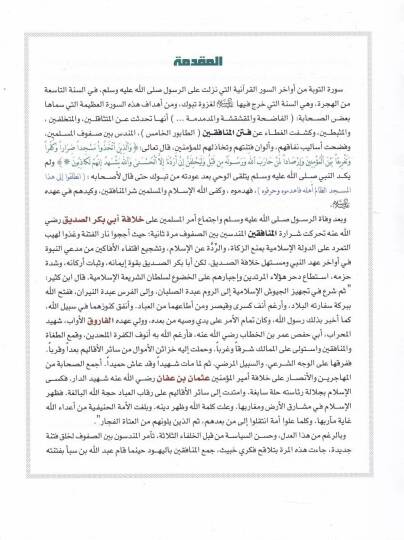 المقدمة
سورة التوبة من أواخر السور القرآنية التي نزلت على الرسول صلى الله عليه وسلم، في السنة التاسعة
من الهجرة، وهي السنة التي خرج فيها ﷺ لغزوة تبوك، ومن أهداف هذه السورة العظيمة التي سماها
بعض الصحابة: (الفاضحة والمقشقشة والمدمدمة ...) أنها تحدثت عن المتثاقلين، والمتخلفين،
والمثبطين، وكشفت الغطاء عن فتن المنافقين (الطابور الخامس)، المندس بين صفوف المسلمين،
وفضحت أساليب نفاقهم، وألوان فتنتهم وتخذيلهم للمؤمنين، قال تعالى: ﴿وَالَّذِينَ اتَّخَذُوا مَسْجِدًا ضِرَارًا وَكُفْرًا
وَتَفْرِيقًا بَيْنَ الْمُؤْمِنِينَ وَإِرْصَادًا لِّمَنْ حَارَبَ اللَّهَ وَرَسُولَهُ مِن قَبْلُ وَلَيَحْلِفُنَّ إِنْ أَرَدْنَا إِلَّا الْحُسْنَى وَاللَّهُ يَشْهَدُ إِنَّهُمْ لَكَاذِبُونَ﴾ ولم
يكد النبي صلى الله عليه وسلم يتلقى الوحي بعد عودته من تبوك حتى قال لأصحابه: (انطلقوا إلى هذا
المسجد الظالم أهله فاهدموه وحرقوه)، فهدموه، وكفى الله الإسلام والمسلمين شر المنافقين، وكيدهم في عهده
ﷺ.
وبعد وفاة الرسول صلى الله عليه وسلم واجتماع أمر المسلمين على خلافة أبي بكر الصديق رضي
الله عنه تحركت شرارة المنافقين المندسين بين الصفوف مرة ثانية: حيث أججوا نار الفتنة وغذوا لهيب
التمرد على الدولة الإسلامية بمنع الزكاة، والردَّة عن الإسلام، وتشجيع افتقاء الأفاكين من مدعي النبوة
في أواخر عهد النبي ومستهل خلافة الصديق، لكن أبا بكر الصديق بقوة إيمانه، وثبات أركانه، وشدة
حزمه، استطاع دحر هؤلاء المرتدين وإجبارهم على الخضوع لسلطان الشريعة الإسلامية. قال ابن كثير:
"ثم شرع في تجهيز الجيوش الإسلامية إلى الروم عبدة الصلبان، وإلى الفرس عبدة النيران، ففتح الله
ببركة سفارته البلاد، وأرغم أنف كسرى وقيصر ومن أطاعهما من العباد. وأنفق كنوزهما في سبيل الله،
كما أخبر بذلك رسول الله، وكان تمام الأمر على يدي وصيه من بعده، وولي عهده الفاروق الأواب، شهيد
المحراب، أبي حفص عمر بن الخطاب رضي الله عنه، فأرغم الله به أنوف الكفرة الملحدين، وقمع الطغاة
والمنافقين واستولى على الممالك شرقاً وغرباً، وحملت إليه خزائن الأموال من سائر الأقاليم بعداً وقرباً،
ففرقها على الوجه الشرعي، والسبيل المرضي، ثم لما مات شهيداً وقد عاش حميداً. أجمع الصحابة من
المهاجرين والأنصار على خلافة أمير المؤمنين عثمان بن عفان رضي الله عنه شهيد الدار، فكسى
الإسلام بجلالة رئاسته حلة سابغة، وامتدت إلى سائر الأقاليم على رقاب العباد حجة الله البالغة، فظهر
الإسلام في مشارق الأرض ومغاربها، وعلت كلمة الله وظهر دينه، وبلغت الأمة الحنيفية من أعداء الله
غاية مآربها، وكلما علوا أمة انتقلوا إلى من بعدهم، ثم الذين يلونهم من العتاة الفجار".
وبالرغم من هذا العدل، وحسن السياسة من قبل الخلفاء الثلاثة، تآمر المندسون بين الصفوف لخلق فتنة
جديدة، جاءت هذه المرة بتلاقح فكري خبيث، جمع المنافقين باليهود حينما قام عبد الله بن سبأ بفتنته